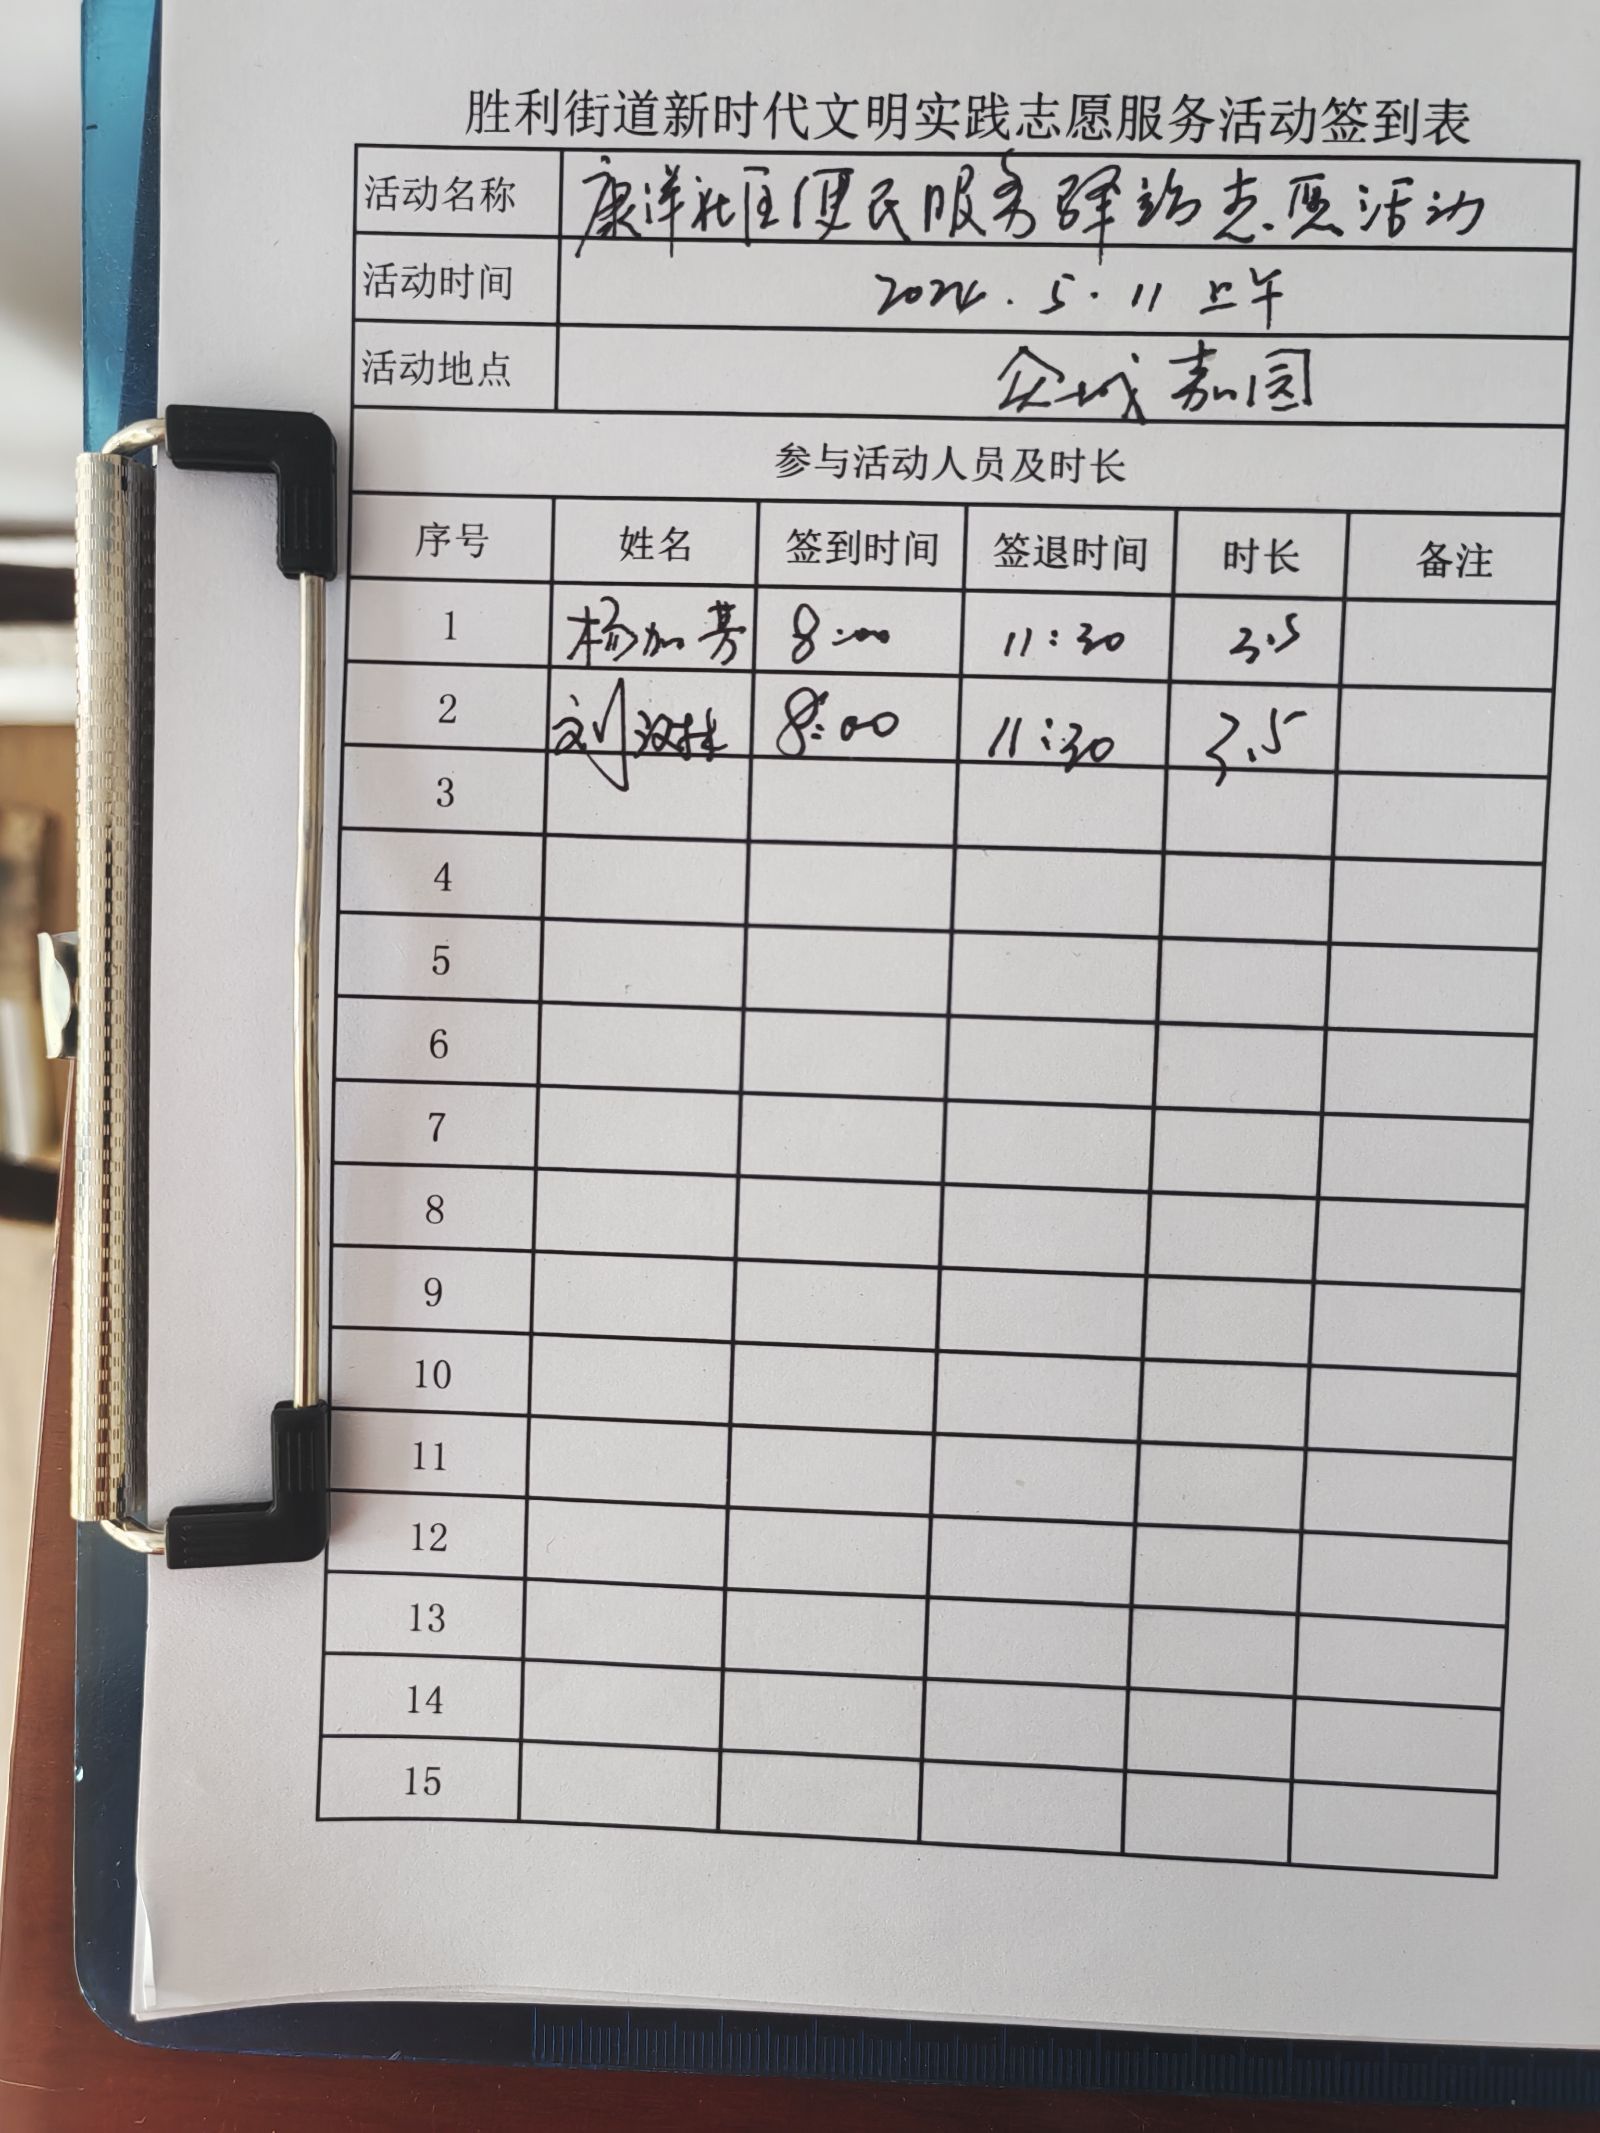 胜利街道新时代文明实践志愿服务活动签到表
活动名称 康洋社区便民服务驿站志愿活动
活动时间 2024.5.11 上午
活动地点 众城嘉园
参与活动人员及时长
序号 姓名 签到时间 签退时间 时长 备注
1 杨加芳 8:00 11:30 3.5
2 刘汉林 8:00 11:30 3.5
3
4
5
6
7
8
9
10
11
12
13
14
15